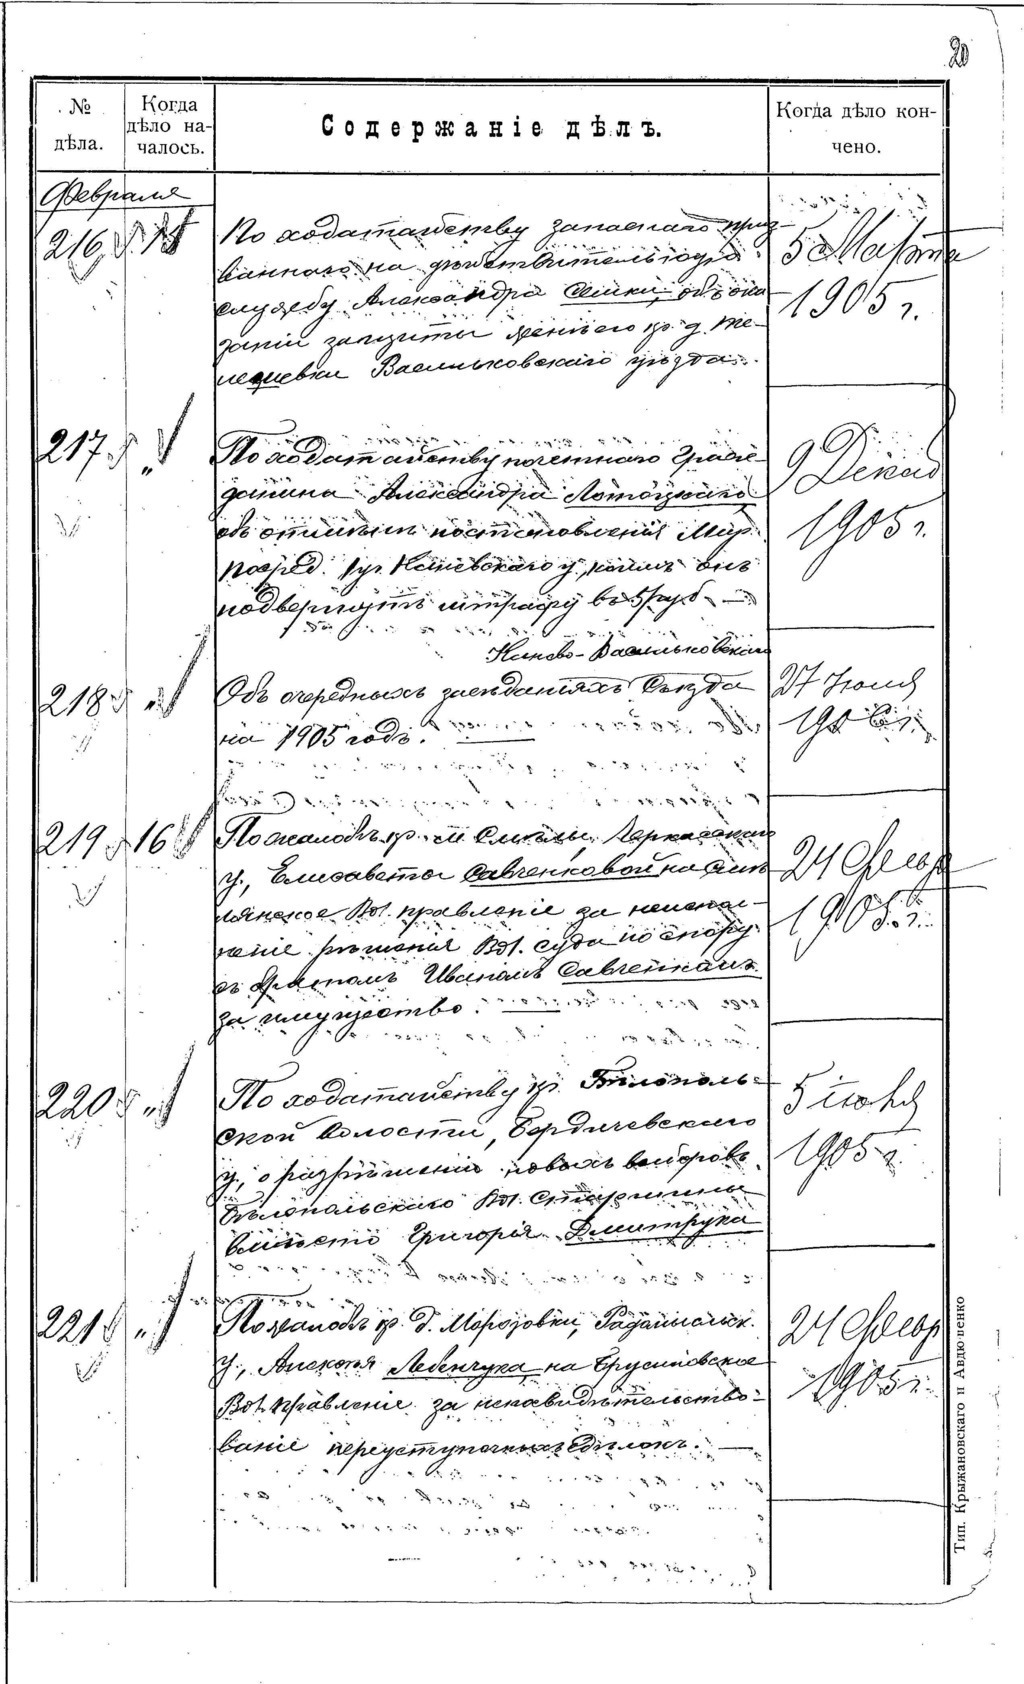 20
№ дѣла.
Когда дѣло началось.
Содержаніе дѣлъ.
Когда дѣло кончено.
Февраля
216 15
По ходатайству запаснаго приз-
ваннаго на дѣйствительную
службу Александра Семки, объ ока-
заніи защиты женѣ его кр. д.
Васильковскаго уѣзда.
5 Марта
1905 г.
217 „
По ходатайству почетнаго Граж-
данина Александра Лотоцкаго
объ отмѣнѣ постановленія Мир.
Посред. Кіевскаго у., коимъ онъ
подвергнутъ штрафу въ 5 руб. —
9 Декаб
1905 г.
218 „
Кіево-Васильковскаго
Объ очередныхъ засѣданіяхъ Съѣзда
на 1905 годъ.
27 Іюня
190 г.
219 16
По жалобѣ кр. м. Смѣлы, Черкасскаго
у., Елисаветы Савченковой на Смѣ-
лянское Вол. правленіе за неиспол-
неніе рѣшенія Вол. суда по спору
съ братомъ Иваномъ Савченкамъ
за имущество.
24 Февр
1905 г.
220 „
По ходатайству кр. Бѣлополь-
ской волости, Бердичевскаго
у., о разрѣшеніи новыхъ выборовъ
Бѣлопольскаго Вол. Старшины
вмѣсто Григорія Дмитрука
5 іюня
1905 г.
221 „
По жалобѣ кр. д. Морозовки, Радомысльск.
у., Алексѣя Лебенчука на Брусиловское
Вол. правленіе за незасвидѣтельство-
ваніе переуступочныхъ сдѣлокъ. —
24 Февр
1905 г.
Тип. Крыжановскаго и Авдюшенко